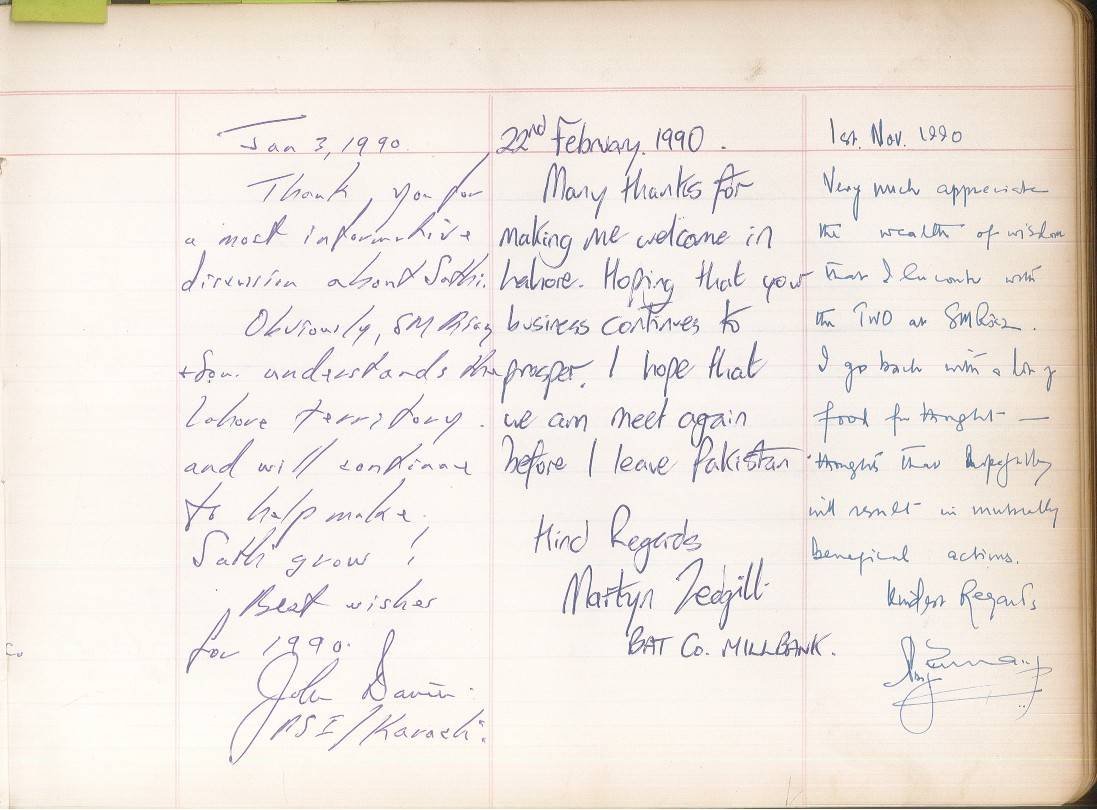 Jan 3, 1990.
Thank you for
a most informative
discussion about Sathi.
Obviously, SM Rizvi
+ Son. understands the
Lahore territory.
and will continue
to help make
Sathi grow!
Best wishes
for 1990.
John
PSI/Karachi.
22nd February. 1990.
Many thanks for
making me welcome in
Lahore. Hoping that your
business continues to
prosper, I hope that
we can meet again
before I leave Pakistan.
Kind Regards
Martyn
BAT Co. MILLBANK.
1st. Nov. 1990
Very much appreciate
the wealth of wisdom
that I encounter with
the TWO at SM
I go back with a lot of
food for thought —
thoughts that hopefully
will result in mutually
benefical actions.
Kindest Regards
Co